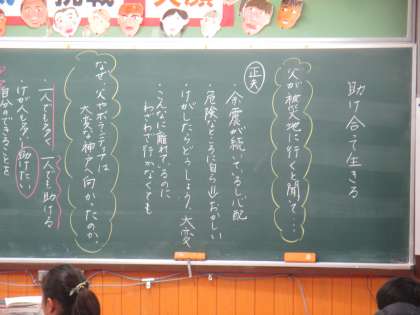 挑戦
助け合って生きる
父が被災地に行くと聞いて…
正夫
・余震が続いているし心配
・危険なところに自ら
おかしい
・けがしたらどうしよう、大変
・こんなに離れているのに
わざわざ行かなくても
なぜ、父やボランティアは
大変な神戸へ向かったのか。
・一人でも多く
一人でも助ける
・けが人も多い
助けたい
・自分のできることを